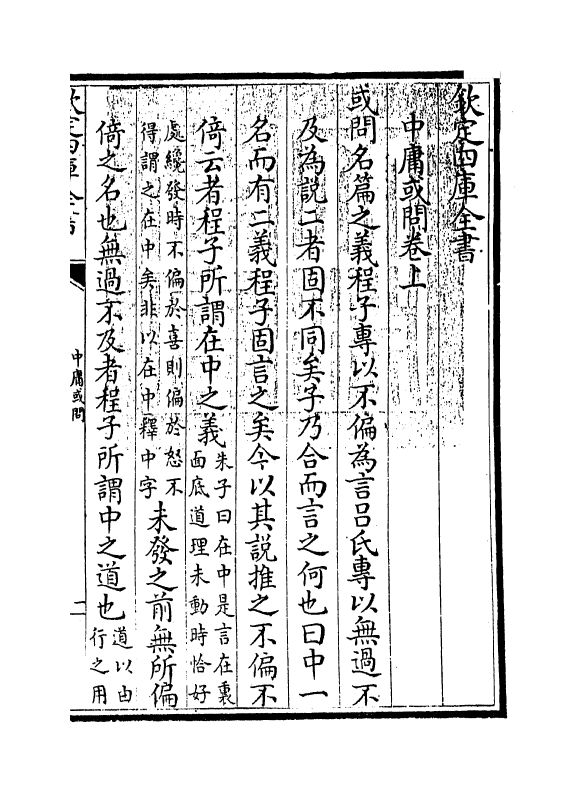 欽定四庫全書
中庸或問卷上
或問名篇之義程子專以不偏為言呂氏專以無過不
及為說二者固不同矣子乃合而言之何也曰中一
名而有二義程子固言之矣今以其說推之不偏不
倚云者程子所謂在中之義
朱子曰在中是言在裏
面底道理未動時恰好
處纔發時不偏於喜則偏於怒不
得謂之在中矣非以在中釋中字
未發之前無所偏
倚之名也無過不及者程子所謂中之道也
道以由
行之用
中庸或問